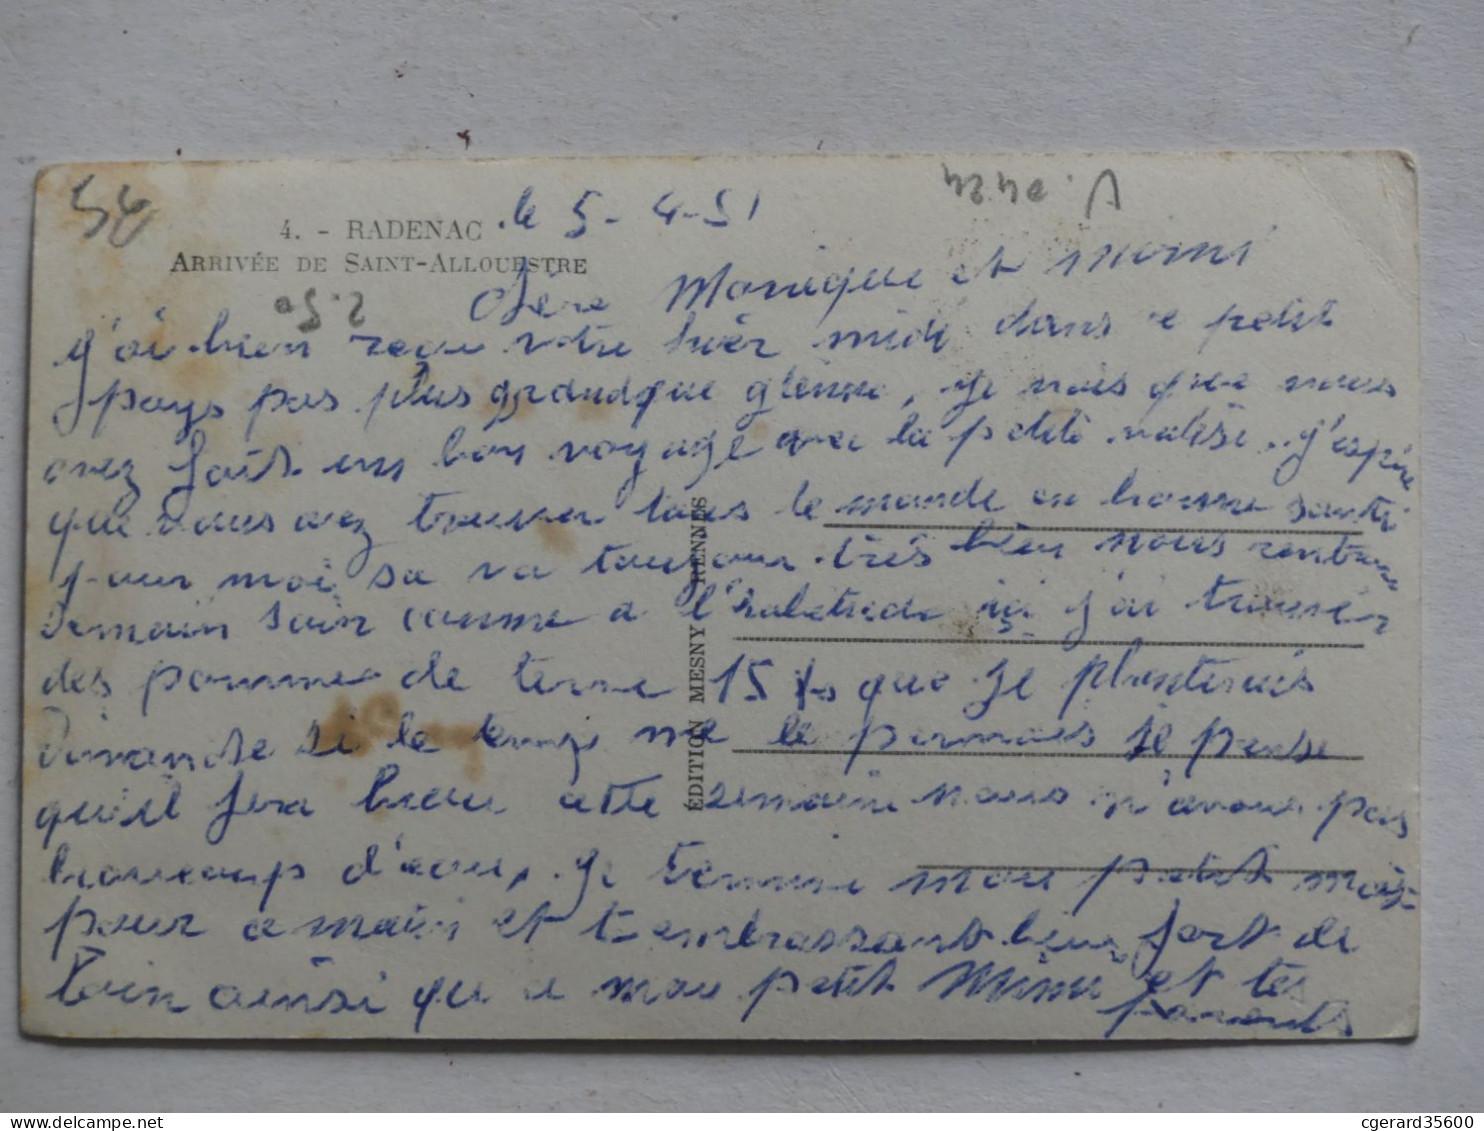 56
4. - RADENAC
ARRIVÉE DE SAINT-ALLOUESTRE
le 5-4-51
V. 0424
2.50
Chère Monique et Mimi
j'ai bien reçu votre hier midi dans ce petit
pays pas plus grand que glènne, je vois que vous
avez fait un bon voyage avec la petite valise. j'espère
que vous avez trouver tous le monde en bonne santé
pour moi sa va toujour très bien nous rentrons
Demain soir comme a l'habetude ici j'ai trouvér
des pomme de terre 15 f que je planterais
Dimanche si le temp me le permais je pense
qu'il fera beau cette semaine nous n'avons pas
beaucoup d'eau, je termine mon petit mot
pour a main et t'embrassant bien fort de
loin ainsi que mon petit Mimi et tes
parents
ÉDITION MESNY RENNES
cgerard35600